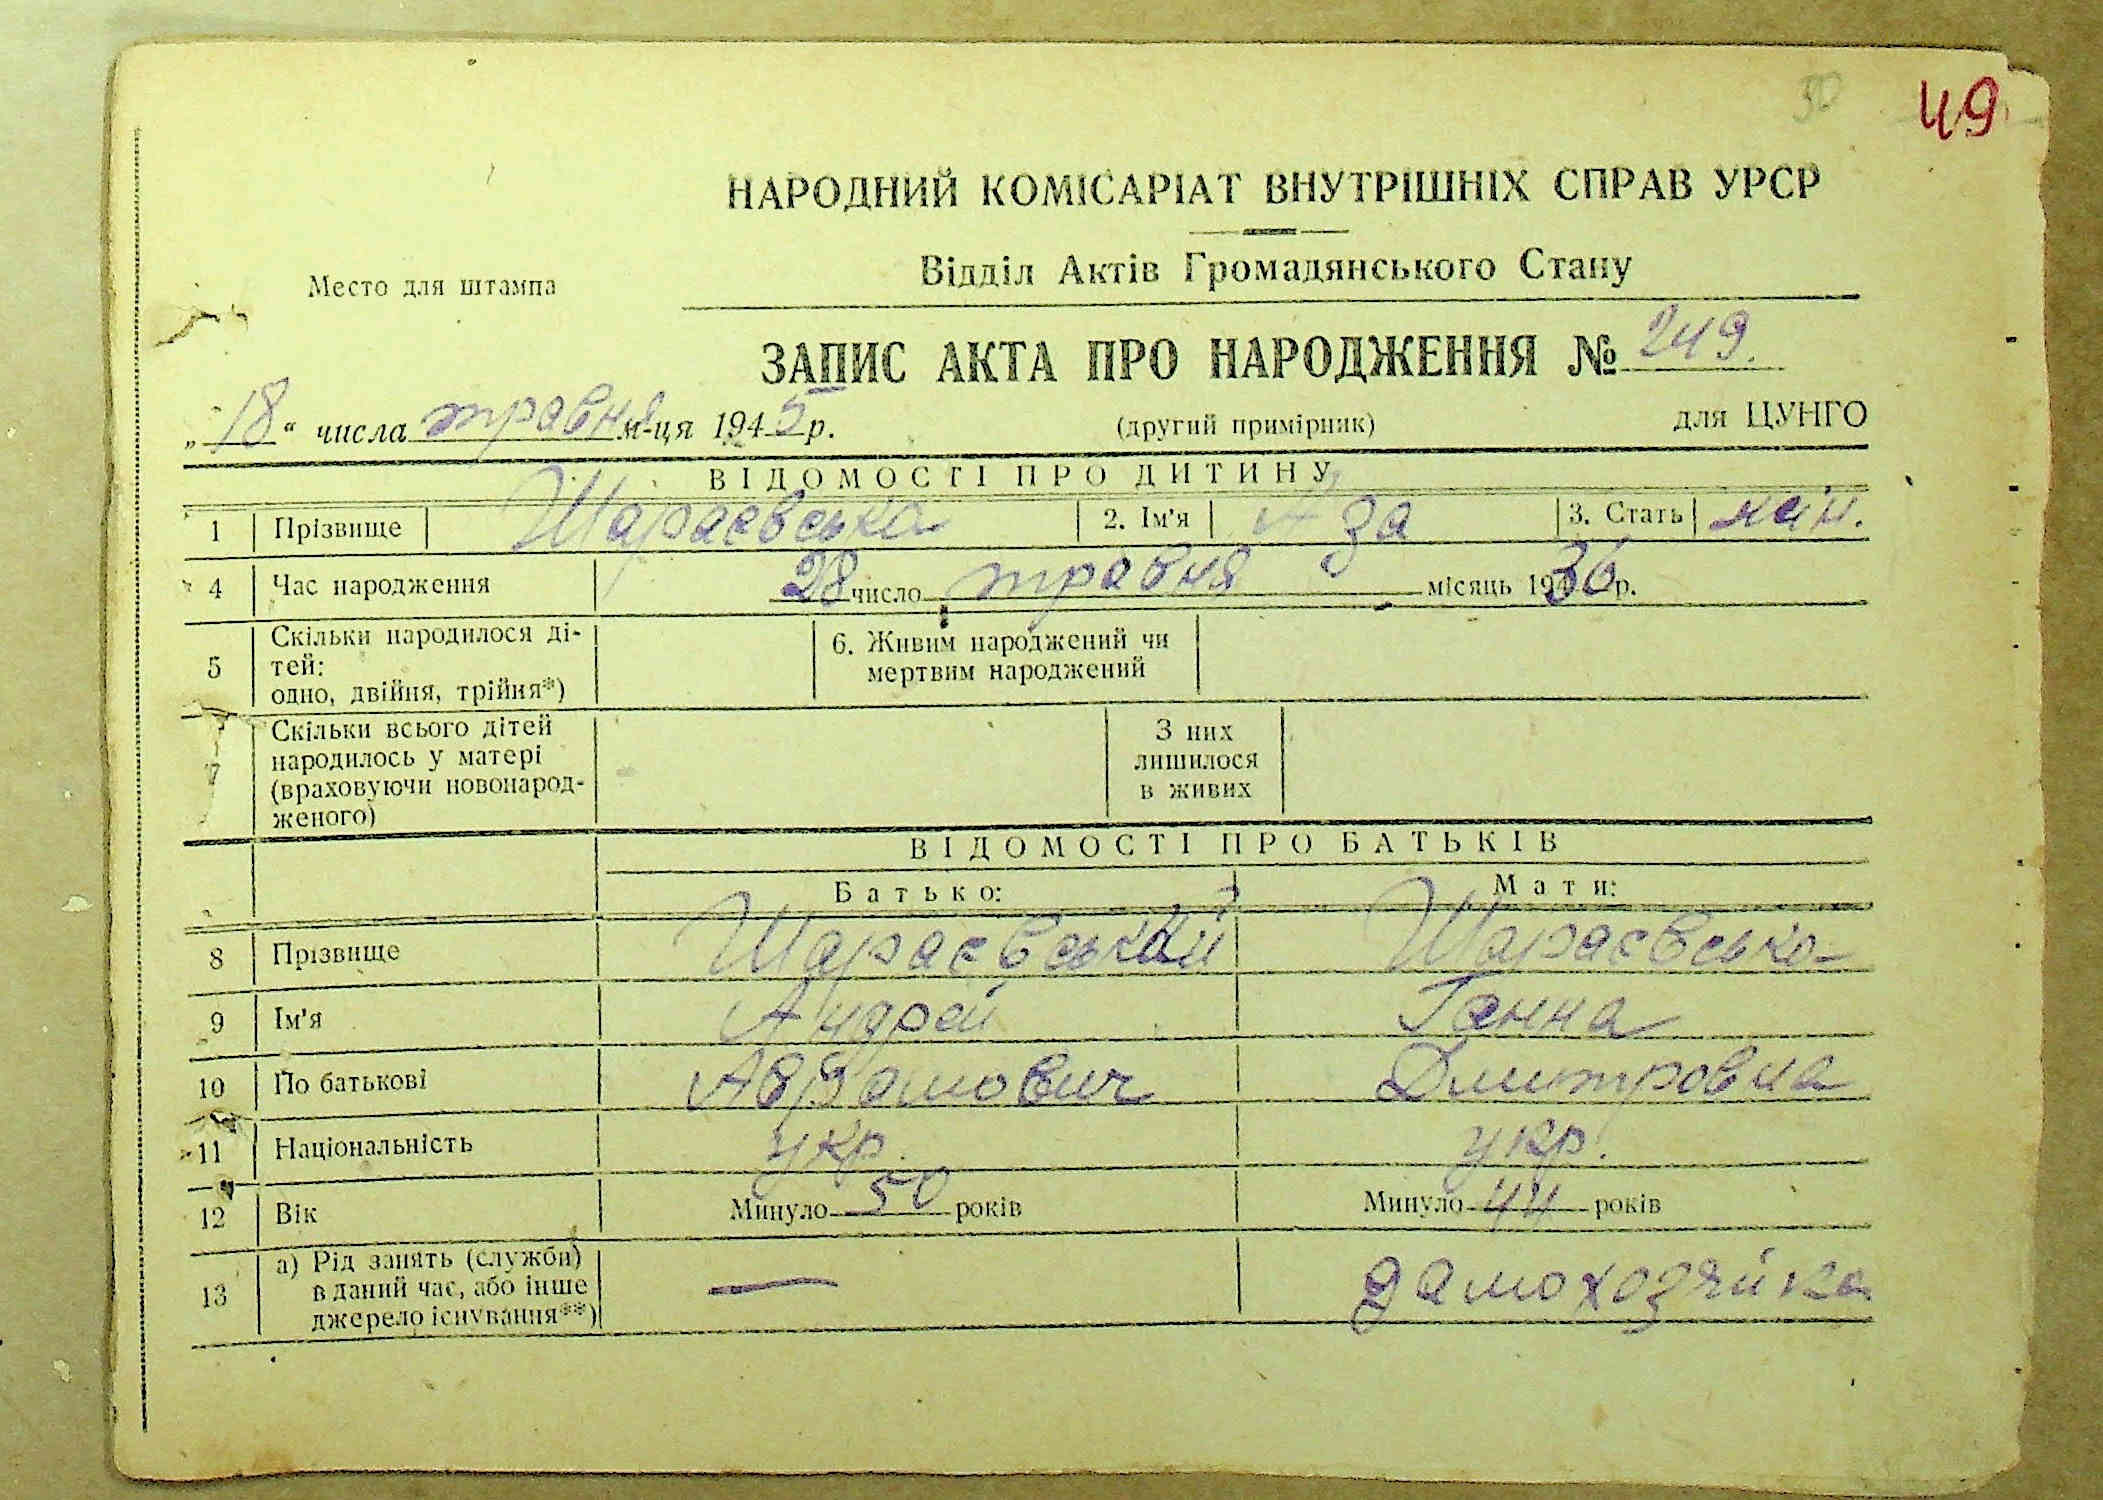 50 49
НАРОДНИЙ КОМІСАРІАТ ВНУТРІШНІХ СПРАВ УРСР
Відділ Актів Громадянського Стану
Место для штампа
ЗАПИС АКТА ПРО НАРОДЖЕННЯ № 249.
„18“ числа травня м-ця 1945 р. (другий примірник) для ЦУНГО
ВІДОМОСТІ ПРО ДИТИНУ
1 Прізвище Шараєвська 2. Ім'я Аза 3. Стать жін.
4 Час народження 28 число травня місяць 1936 р.
5 Скільки народилося ді-
тей:
одно, двійня, трійня*)
6. Живим народжений чи
мертвим народжений
7 Скільки всього дітей
народилось у матері
(враховуючи новонарод-
женого)
З них
лишилося
в живих
ВІДОМОСТІ ПРО БАТЬКІВ
Батько: Мати:
8 Прізвище Шараєвський Шараєвська
9 Ім'я Андрей Ганна
10 По батькові Аврамович Дмитровна
11 Національність укр. укр.
12 Вік Минуло 50 років Минуло 44 років
13 а) Рід занять (служби)
в даний час, або інше
джерело існування**)
— дамохозяйка